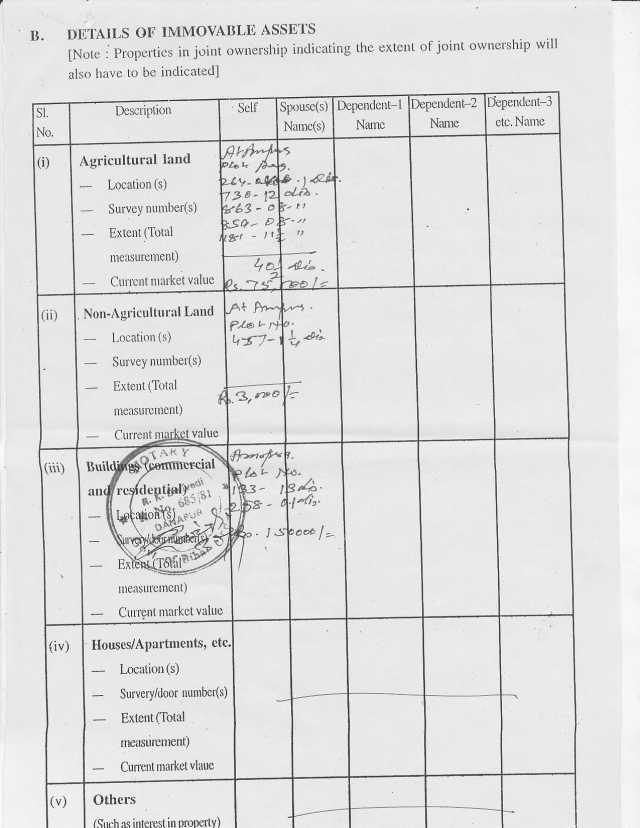 B. DETAILS OF IMMOVABLE ASSETS
[Note : Properties in joint ownership indicating the extent of joint ownership will
also have to be indicated]
Sl. No. Description Self Spouse(s) Name(s) Dependent–1 Name Dependent–2 Name Dependent–3 etc. Name
(i) Agricultural land
At
Plot
— Location (s)
264-
730-12 dis.
— Survey number(s)
863-08-"
850-08-"
— Extent (Total
181-11½ "
measurement)
40½ dis.
— Current market value
Rs. 75,000/=
(ii) Non-Agricultural Land
At
Plot No.
— Location (s)
457-1¼ dis
— Survey number(s)
— Extent (Total
Rs. 3,000/=
measurement)
— Current market value
(iii) Buildings (commercial
Plot No.
and residential)
133- 13 dis.
— Location (s)
258-01 dis.
— Survey/door number(s)
Rs. 150000/=
— Extent (Total
measurement)
— Current market value
NOTARY
No. 685/81
DANAPUR
(iv) Houses/Apartments, etc.
— Location (s)
— Survery/door number(s)
— Extent (Total
measurement)
— Current market vlaue
(v) Others
(Such as interest in property)